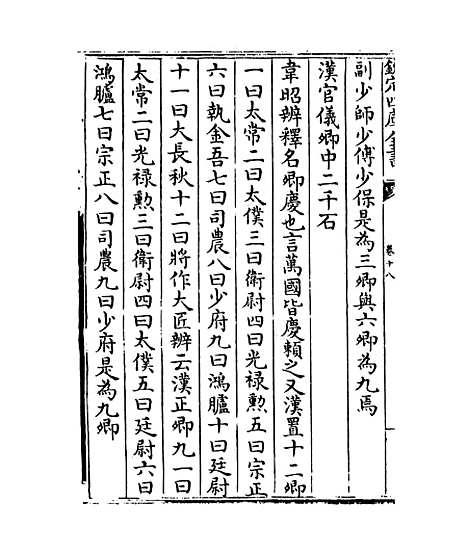 欽定四庫全書
卷十八
副少師少傅少保是為三卿與六卿為九焉
漢官儀卿中二千石
韋昭辨釋名卿慶也言萬國皆慶賴之又漢置十二卿
一曰太常二曰太僕三曰衛尉四曰光禄勲五曰宗正
六曰執金吾七曰司農八曰少府九曰鴻臚十曰廷尉
十一曰大長秋十二曰將作大匠辨云漢正卿九一曰
太常二曰光禄勲三曰衛尉四曰太僕五曰廷尉六曰
鴻臚七曰宗正八曰司農九曰少府是為九卿